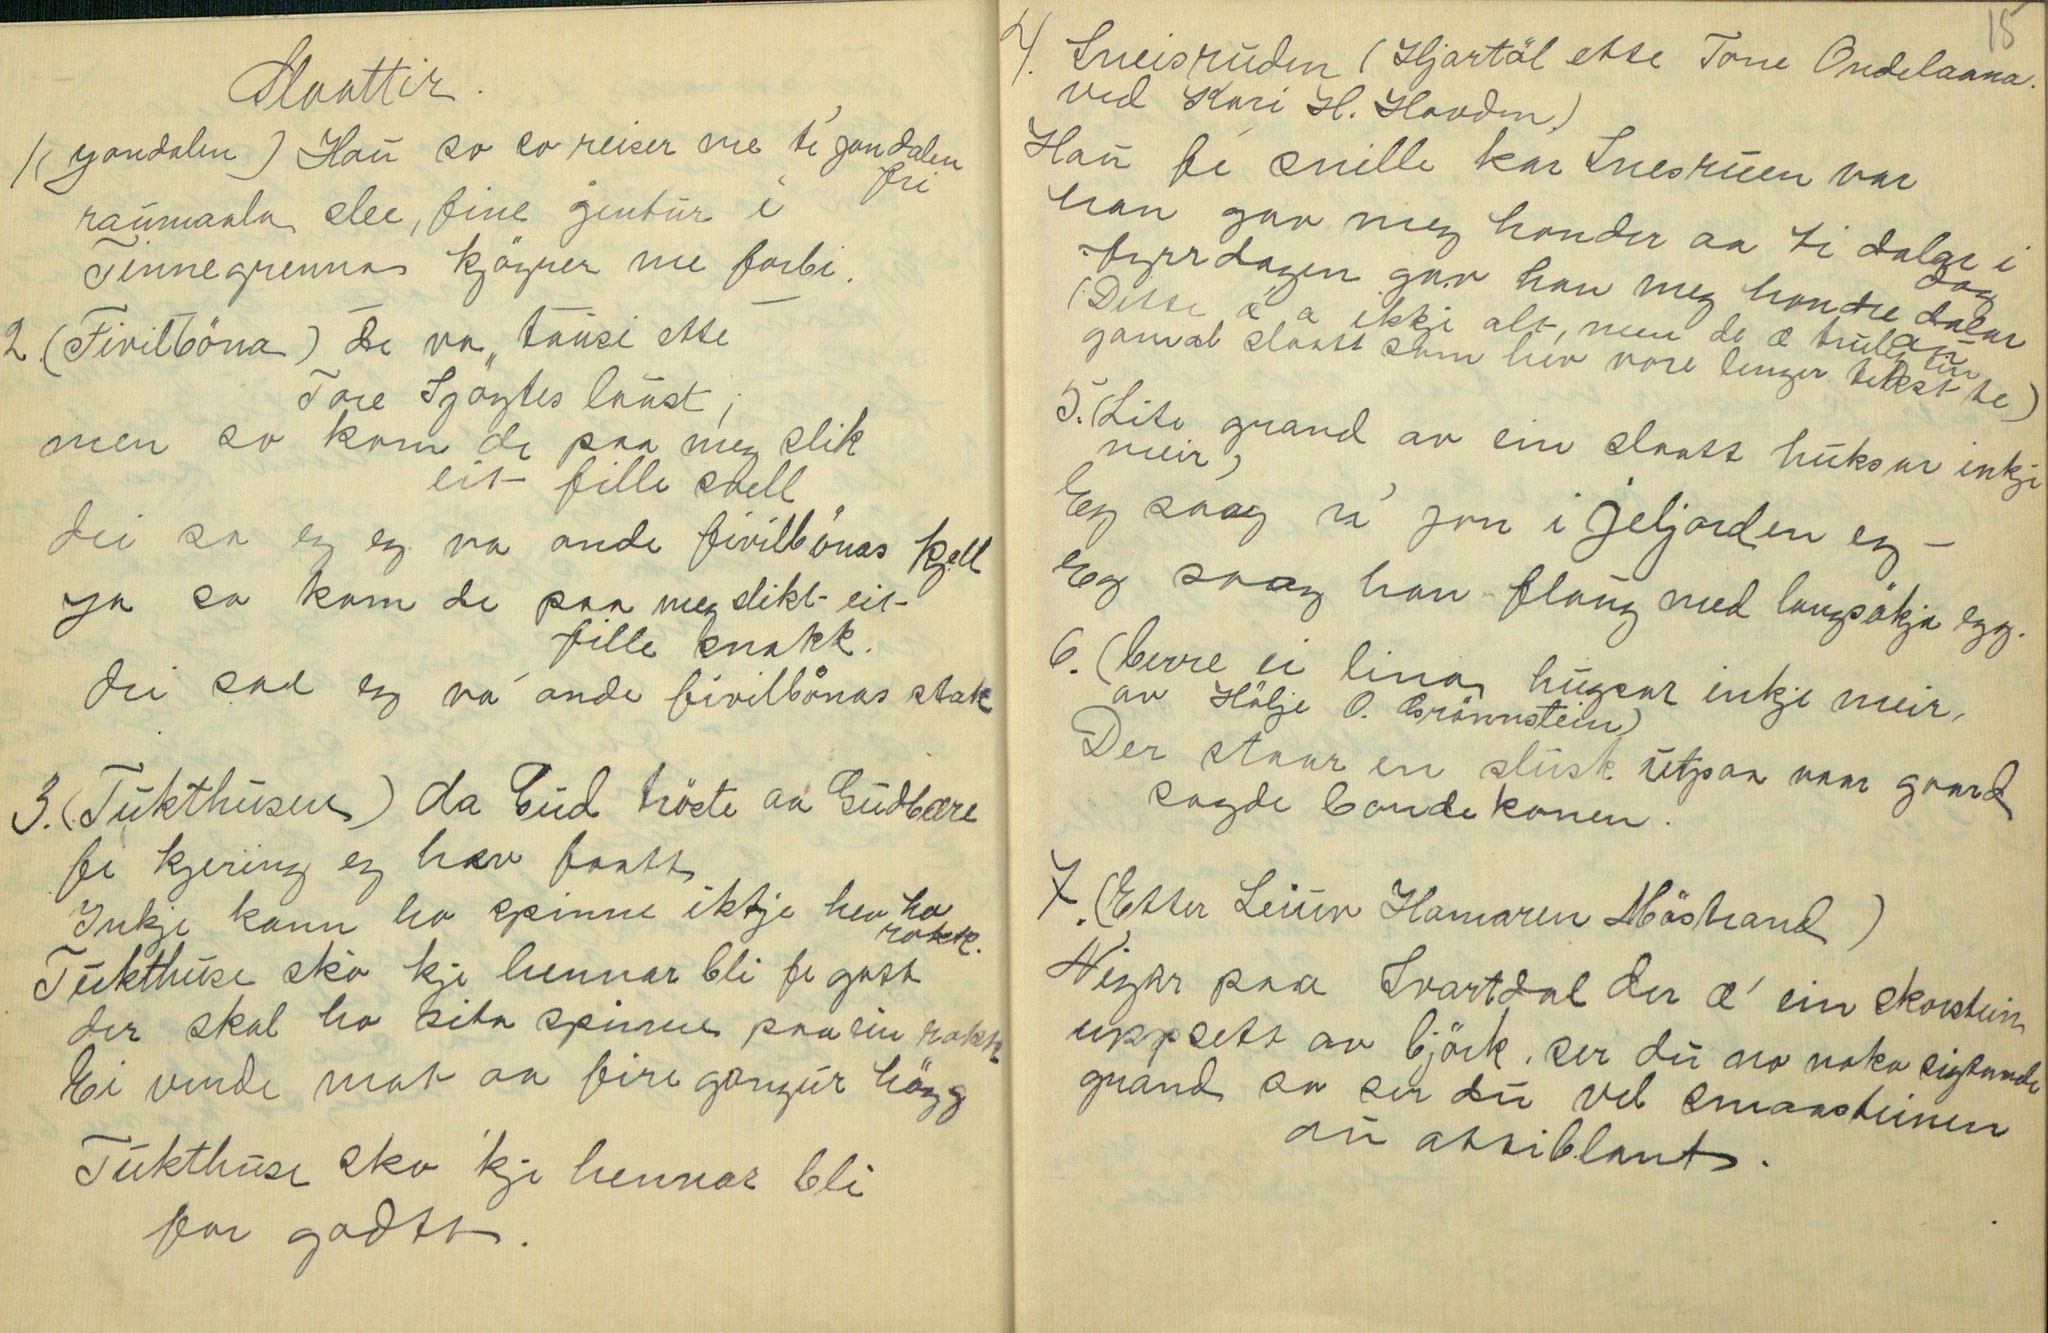 Slaattir.
1( gondalen) Haŭ so so reiser me te' gondalen
fri
raumaala slee, fine gjentur i
Tinnegrennas kjøgrer me forbi.
2. (Fivilböna) de va, tausi ette
Tore Sjøgtes laast;
men so kom de paa meg slik
eit fille snell
dei sa eg eg va onde fivilbönas kjell
ya so kom de paa meg slikt eit
fille snakk.
dei sae eg va' onde fivilbönas stak
3. (Tŭkthŭsen) da Gud tröste aa Gudbære
fe kjering eg hev faatt
Inkje kann ho spinne iktje hev ho
rokk.
Tŭkthŭse sko kje hennar bli fe gott
der skal ho sita spinne paa ein rokk
Ei vende mat aa fire gongŭr högg
Tŭkthŭse sko 'kje hennar bli
for godtt.
15
4. Sneisrŭden (Hjartöl ette Tone Ondelaana.
ved Kari H. Hovden)
Haŭ fe snille kar Snesrŭen var
han gav meg hondre aa ti dalar i
dag
fyrrdagen gav han meg hondre dalar
(Dette æ' a ikkje alt, men de æ truleg ein
gamal slaatt som hev vore lenger tekst te)
5. (Lite grand av ein slaatt hŭksar inkje
meir)
Eg saag n' jon i Jeljorden eg –
Eg saag han flaŭg med langsökja egg.
6. (berre ei lina, hŭgsar inkje meir,
av Hölje O. Grönnstein)
Der staar en slŭsk ŭtpaa vaar gaard
sagde bondekonen.
7. (Etter Leiŭv Hamaren Möstrand)
Nigar paa Svartdal der æ' ein skorstein
uppsett av björk. ser dŭ no noko sigtande
grand so ser dŭ vel smaasteinen
aŭ attiblant.